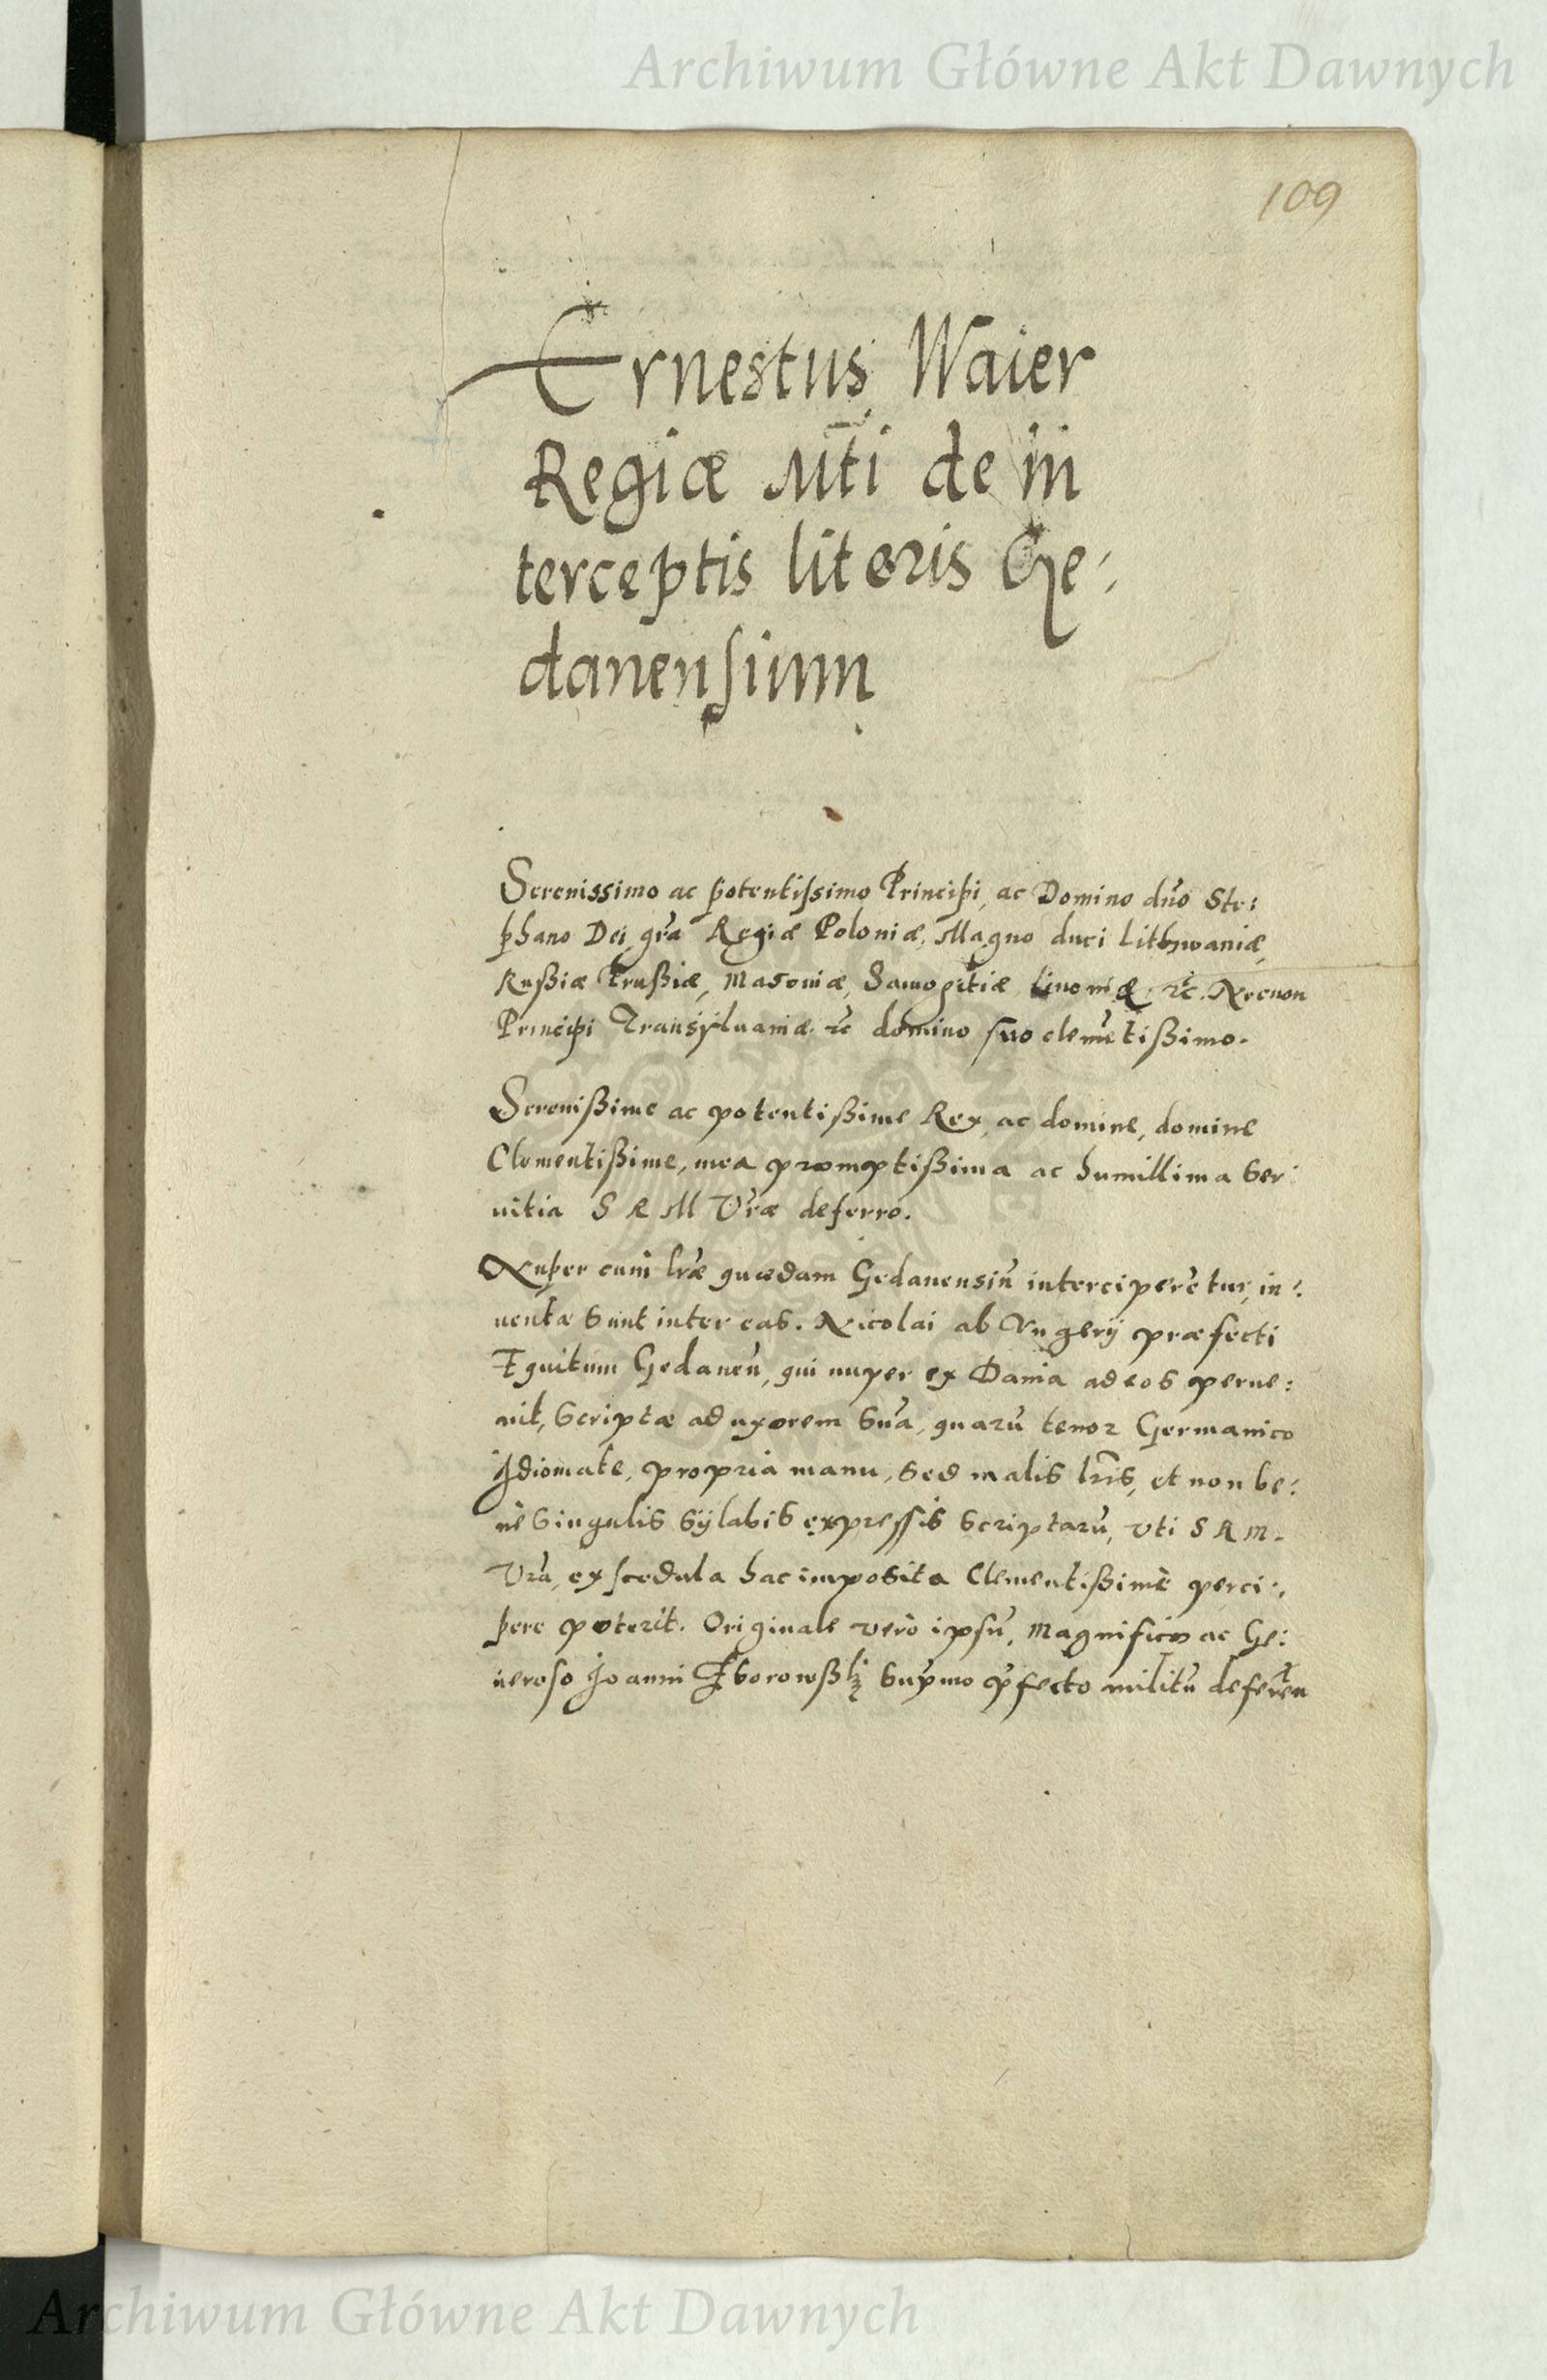 Archiwum Główne Akt Dawnych
109
Ernestus Waier
Regiæ Mti de in
terceptis literis Ge:
danensium
Serenissimo ac potentissimo Principi, ac Domino dno Ste:
phano Dei gra Regiæ Poloniæ, Magno duci Lithwaniæ,
Rußiæ Prußiæ, Masoviæ, Samogitiæ Livoniæ etc. Necnon
Principi Transÿlvaniæ etc domino suo clemētißimo.
Serenißime ac potentißime Rex, ac domine, domine
Clementißime, mea promptißima ac humillima ser:
vitia S R M Vræ deferro.
Nuper cum lræ quædam Gedanensiū interciperētur, in:
ventæ sunt inter eas. Nicolai ab Ungerÿ præfecti
Equitum Gedanen, qui nuper ex Dania ad eos perve:
nit, scriptæ ad uxorem suā, quarū tenor Germanico
Idiomate, propria manu, sed malis lris, et non be:
nè singulis sÿlabis expressis scriptarū, uti S R M.
Vrā, ex scedula hac imposita Clementißimè perci:
pere poterit. Originale verò ipsū, Magnifico ac Ge:
neroso Joanni Sborowßkj supmo pfecto militū deferen
Archiwum Główne Akt Dawnych